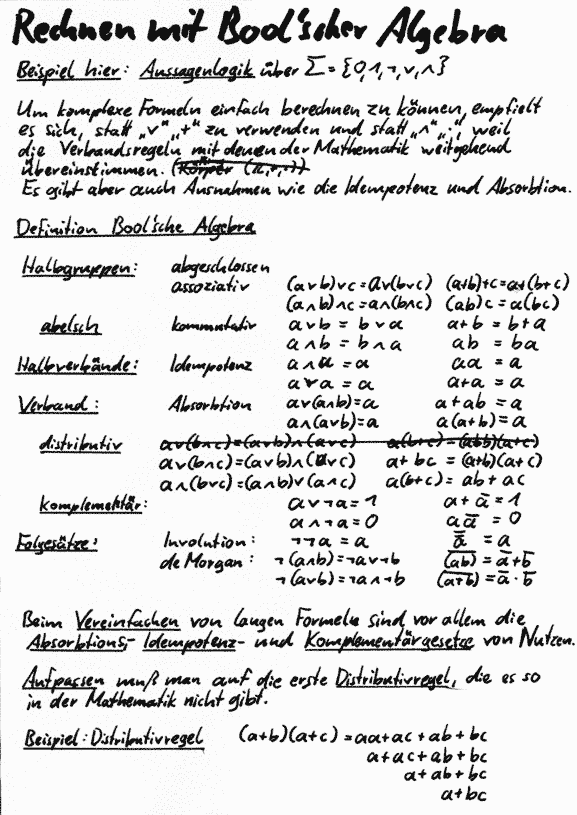 Rechnen mit Bool'scher Algebra
Beispiel hier: Aussagenlogik über Σ = {0,1,¬,∨,∧}
Um komplexe Formeln einfach berechnen zu können, empfielt
es sich, statt „∨" „+" zu verwenden und statt „∧" „·", weil
die Verbandsregeln mit denen der Mathematik weitgehend
übereinstimmen. (Körper (a,+,·))
Es gibt aber auch Ausnahmen wie die Idempotenz und Absorbtion.
Definition Bool'sche Algebra
Halbgruppen: abgeschlossen
assoziativ (a∨b)∨c=a∨(b∨c) (a+b)+c=a+(b+c)
(a∧b)∧c=a∧(b∧c) (ab)c=a(bc)
abelsch kommutativ a∨b = b∨a a+b = b+a
a∧b = b∧a ab = ba
Halbverbände: Idempotenz a∧a = a aa = a
a∨a = a a+a = a
Verband: Absorbtion a∨(a∧b)=a a+ab = a
a∧(a∨b)=a a(a+b) = a
distributiv a∨(b∧c)=(a∨b)∧(a∨c) a(b+c) = (ab)(a+c)
a∨(b∧c)=(a∨b)∧(a∨c) a+bc = (a+b)(a+c)
a∧(b∨c)=(a∧b)∨(a∧c) a(b+c) = ab+ac
komplementär: a∨¬a=1 a+ā=1
a∧¬a=0 aā = 0
Folgesätze: Involution: ¬¬a = a a̿ = a
de Morgan: ¬(a∧b)=¬a∨¬b (ab)̅ = ā+b̅
¬(a∨b)=¬a∧¬b (a+b)̅ = ā·b̅
Beim Vereinfachen von langen Formeln sind vor allem die
Absorbtions-, Idempotenz- und Komplementärgesetze von Nutzen.
Aufpassen muß man auf die erste Distributivregel, die es so
in der Mathematik nicht gibt.
Beispiel: Distributivregel (a+b)(a+c) = aa+ac+ab+bc
a+ac+ab+bc
a+ab+bc
a+bc